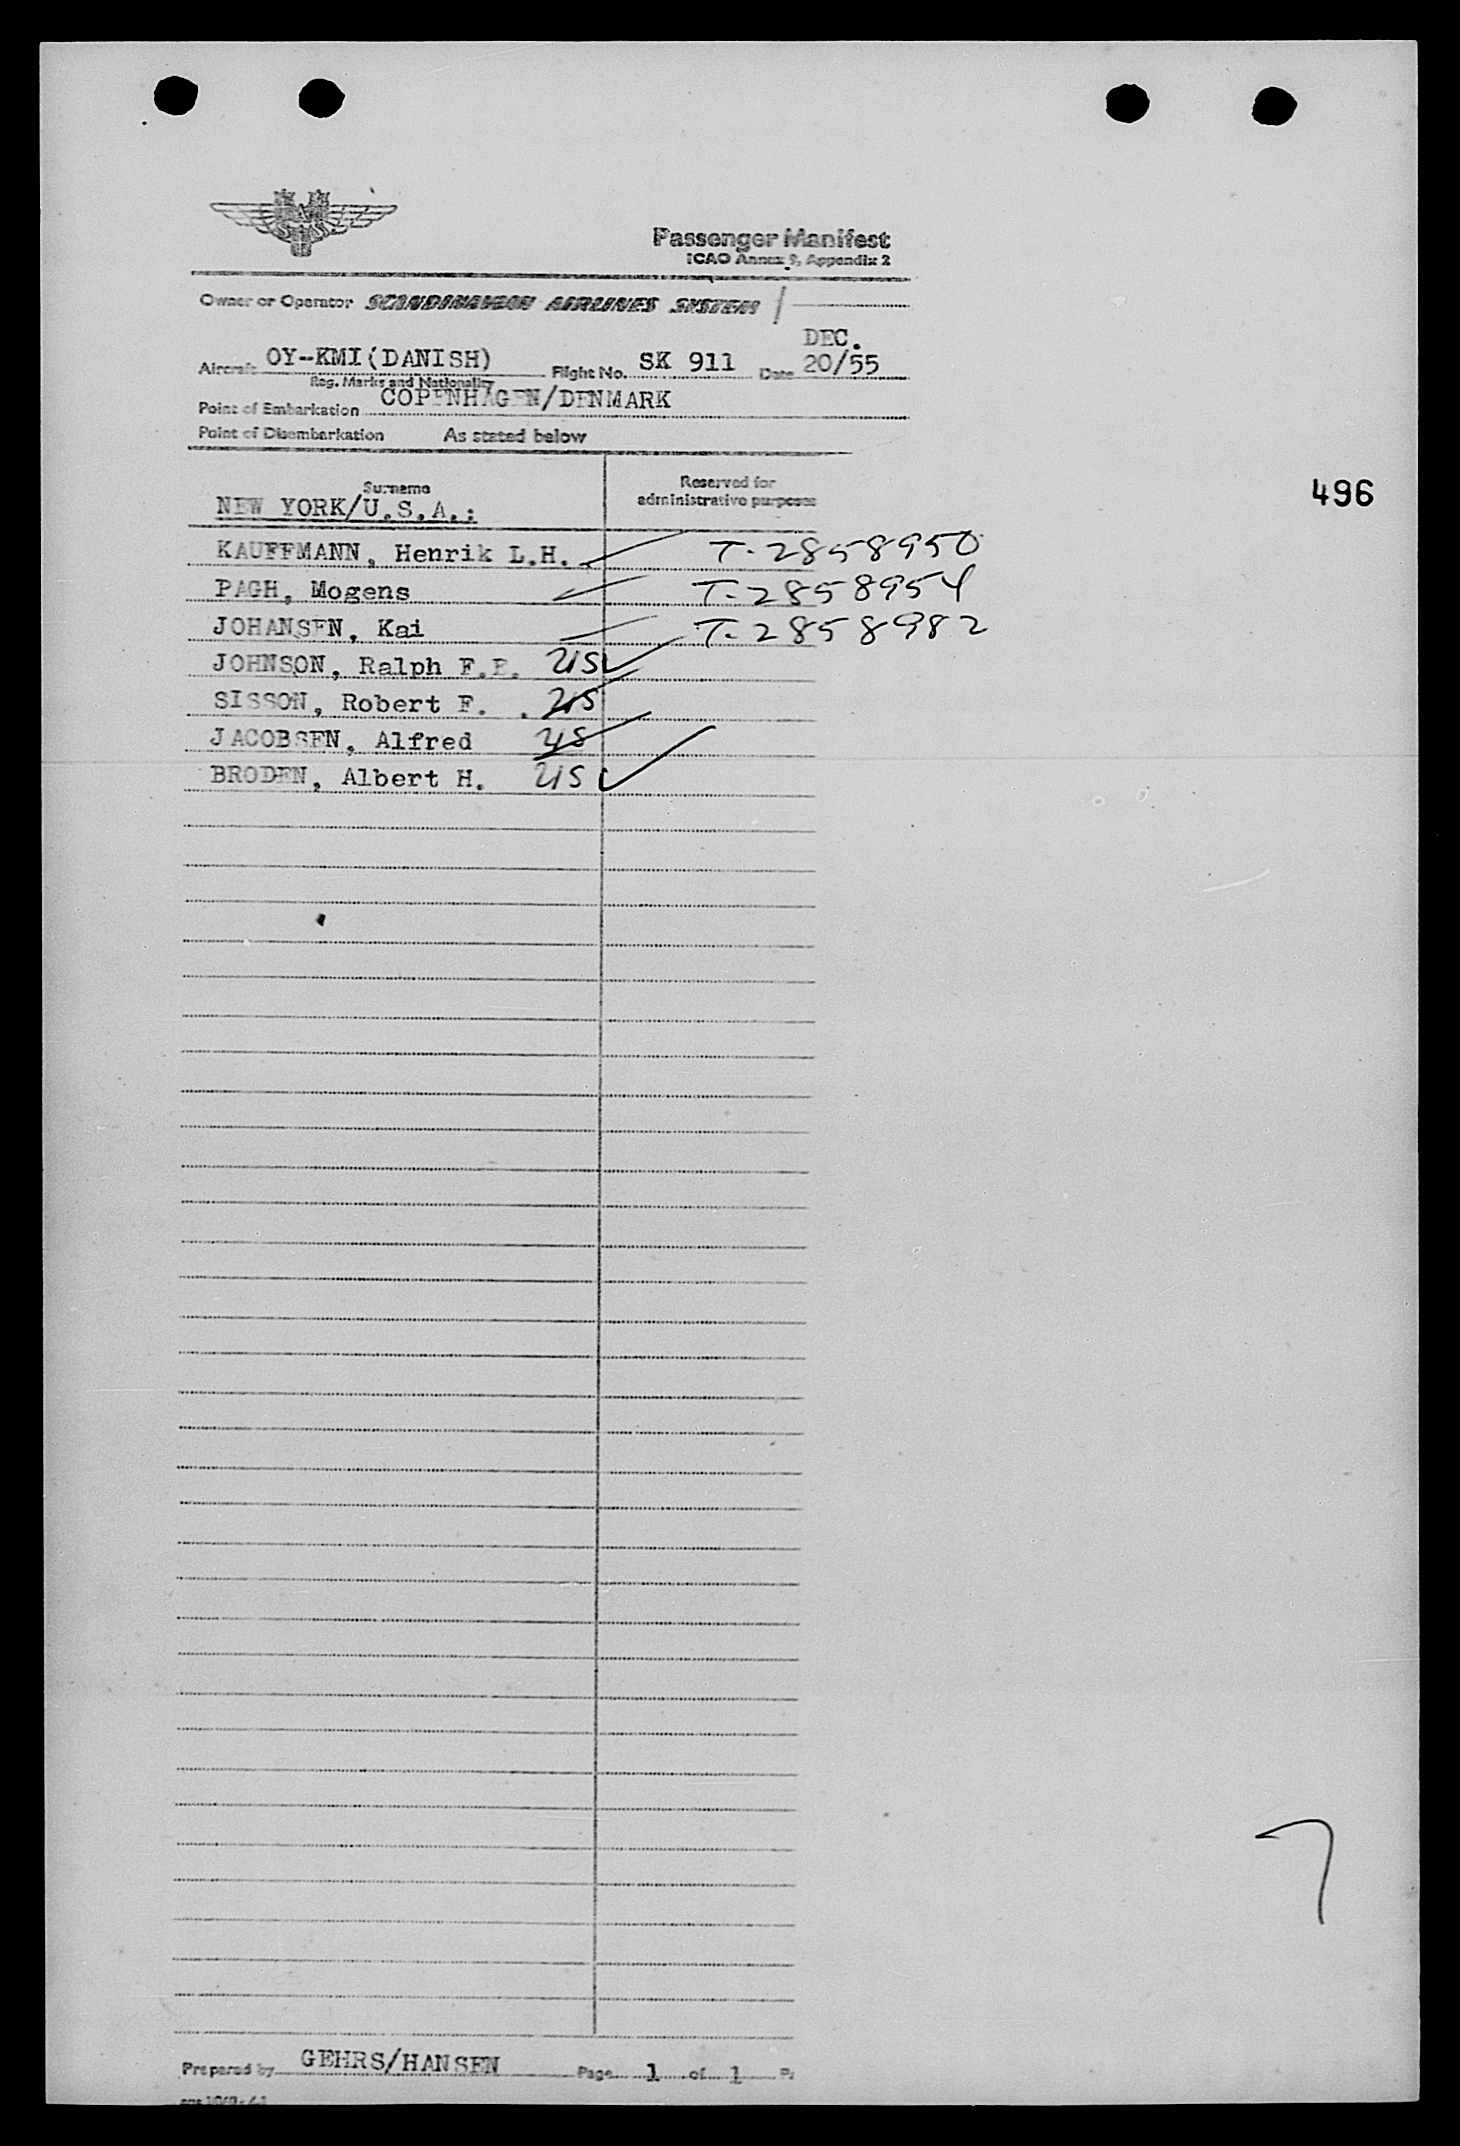 SAS
Passenger Manifest
ICAO Annex 9, Appendix 2
Owner or Operator SCANDINAVIAN AIRLINES SYSTEM /
DEC.
Aircraft OY-KMI(DANISH) Flight No. SK 911 Date 20/55
Reg. Marks and Nationality
Point of Embarkation COPENHAGEN/DENMARK
Point of Disembarkation As stated below
Surname Reserved for administrative purposes
NEW YORK/U.S.A.:
496
KAUFFMANN, Henrik L.H. T-2858950
PAGH, Mogens T-2858954
JOHANSEN, Kai T-2858982
JOHNSON, Ralph F. US
SISSON, Robert F. US
JACOBSEN, Alfred US
BRODEN, Albert H. US
7
Prepared by GEHRS/HANSEN Page 1 of 1